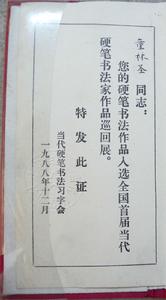 童林圣 同志：
您的硬笔书法作品入选全国首届当代
硬笔书法家作品巡回展。
特发此证
当代硬笔书法习字会
一九八八年十二月